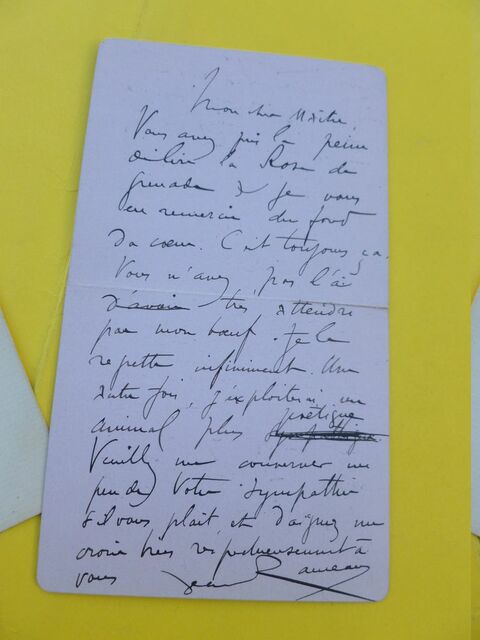 Mon cher Maître,
Vous avez pris la peine
de lire la Rose de
Grenade & je vous
en remercie du fond
du cœur. C'est toujours ça.
Vous n'avez pas l'air
d'avoir très attendri
par mon bœuf. Je le
regrette infiniment. Une
autre fois, j'exploiterai un
animal plus poétique
Veuillez me conserver un
peu de votre sympathie
s'il vous plait, et daignez me
croire très respectueusement à
vous Jean Rameau